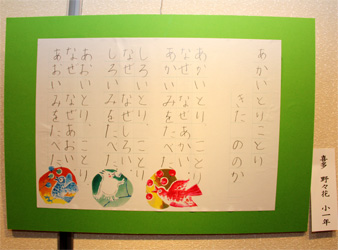 あかいとりことり
きた ののか
あかいとり ことり
なぜ なぜあかい
あかいみをたべた
しろいとり、ことり
なぜ なぜしろい、
しろいみをたべた
あおいとり、ことり
なぜ なぜあおい
あおいみをたべた
喜多 野々花 小一年